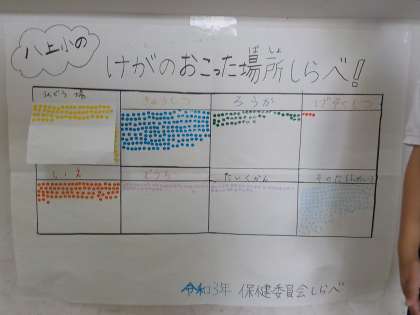 八上小の
けがのおこった場所しらべ!!
ばしょ
うんどう場
きょうしつ
ろうか
いえ
どうろ
たいくかん
令和3年 保健委員会しらべ